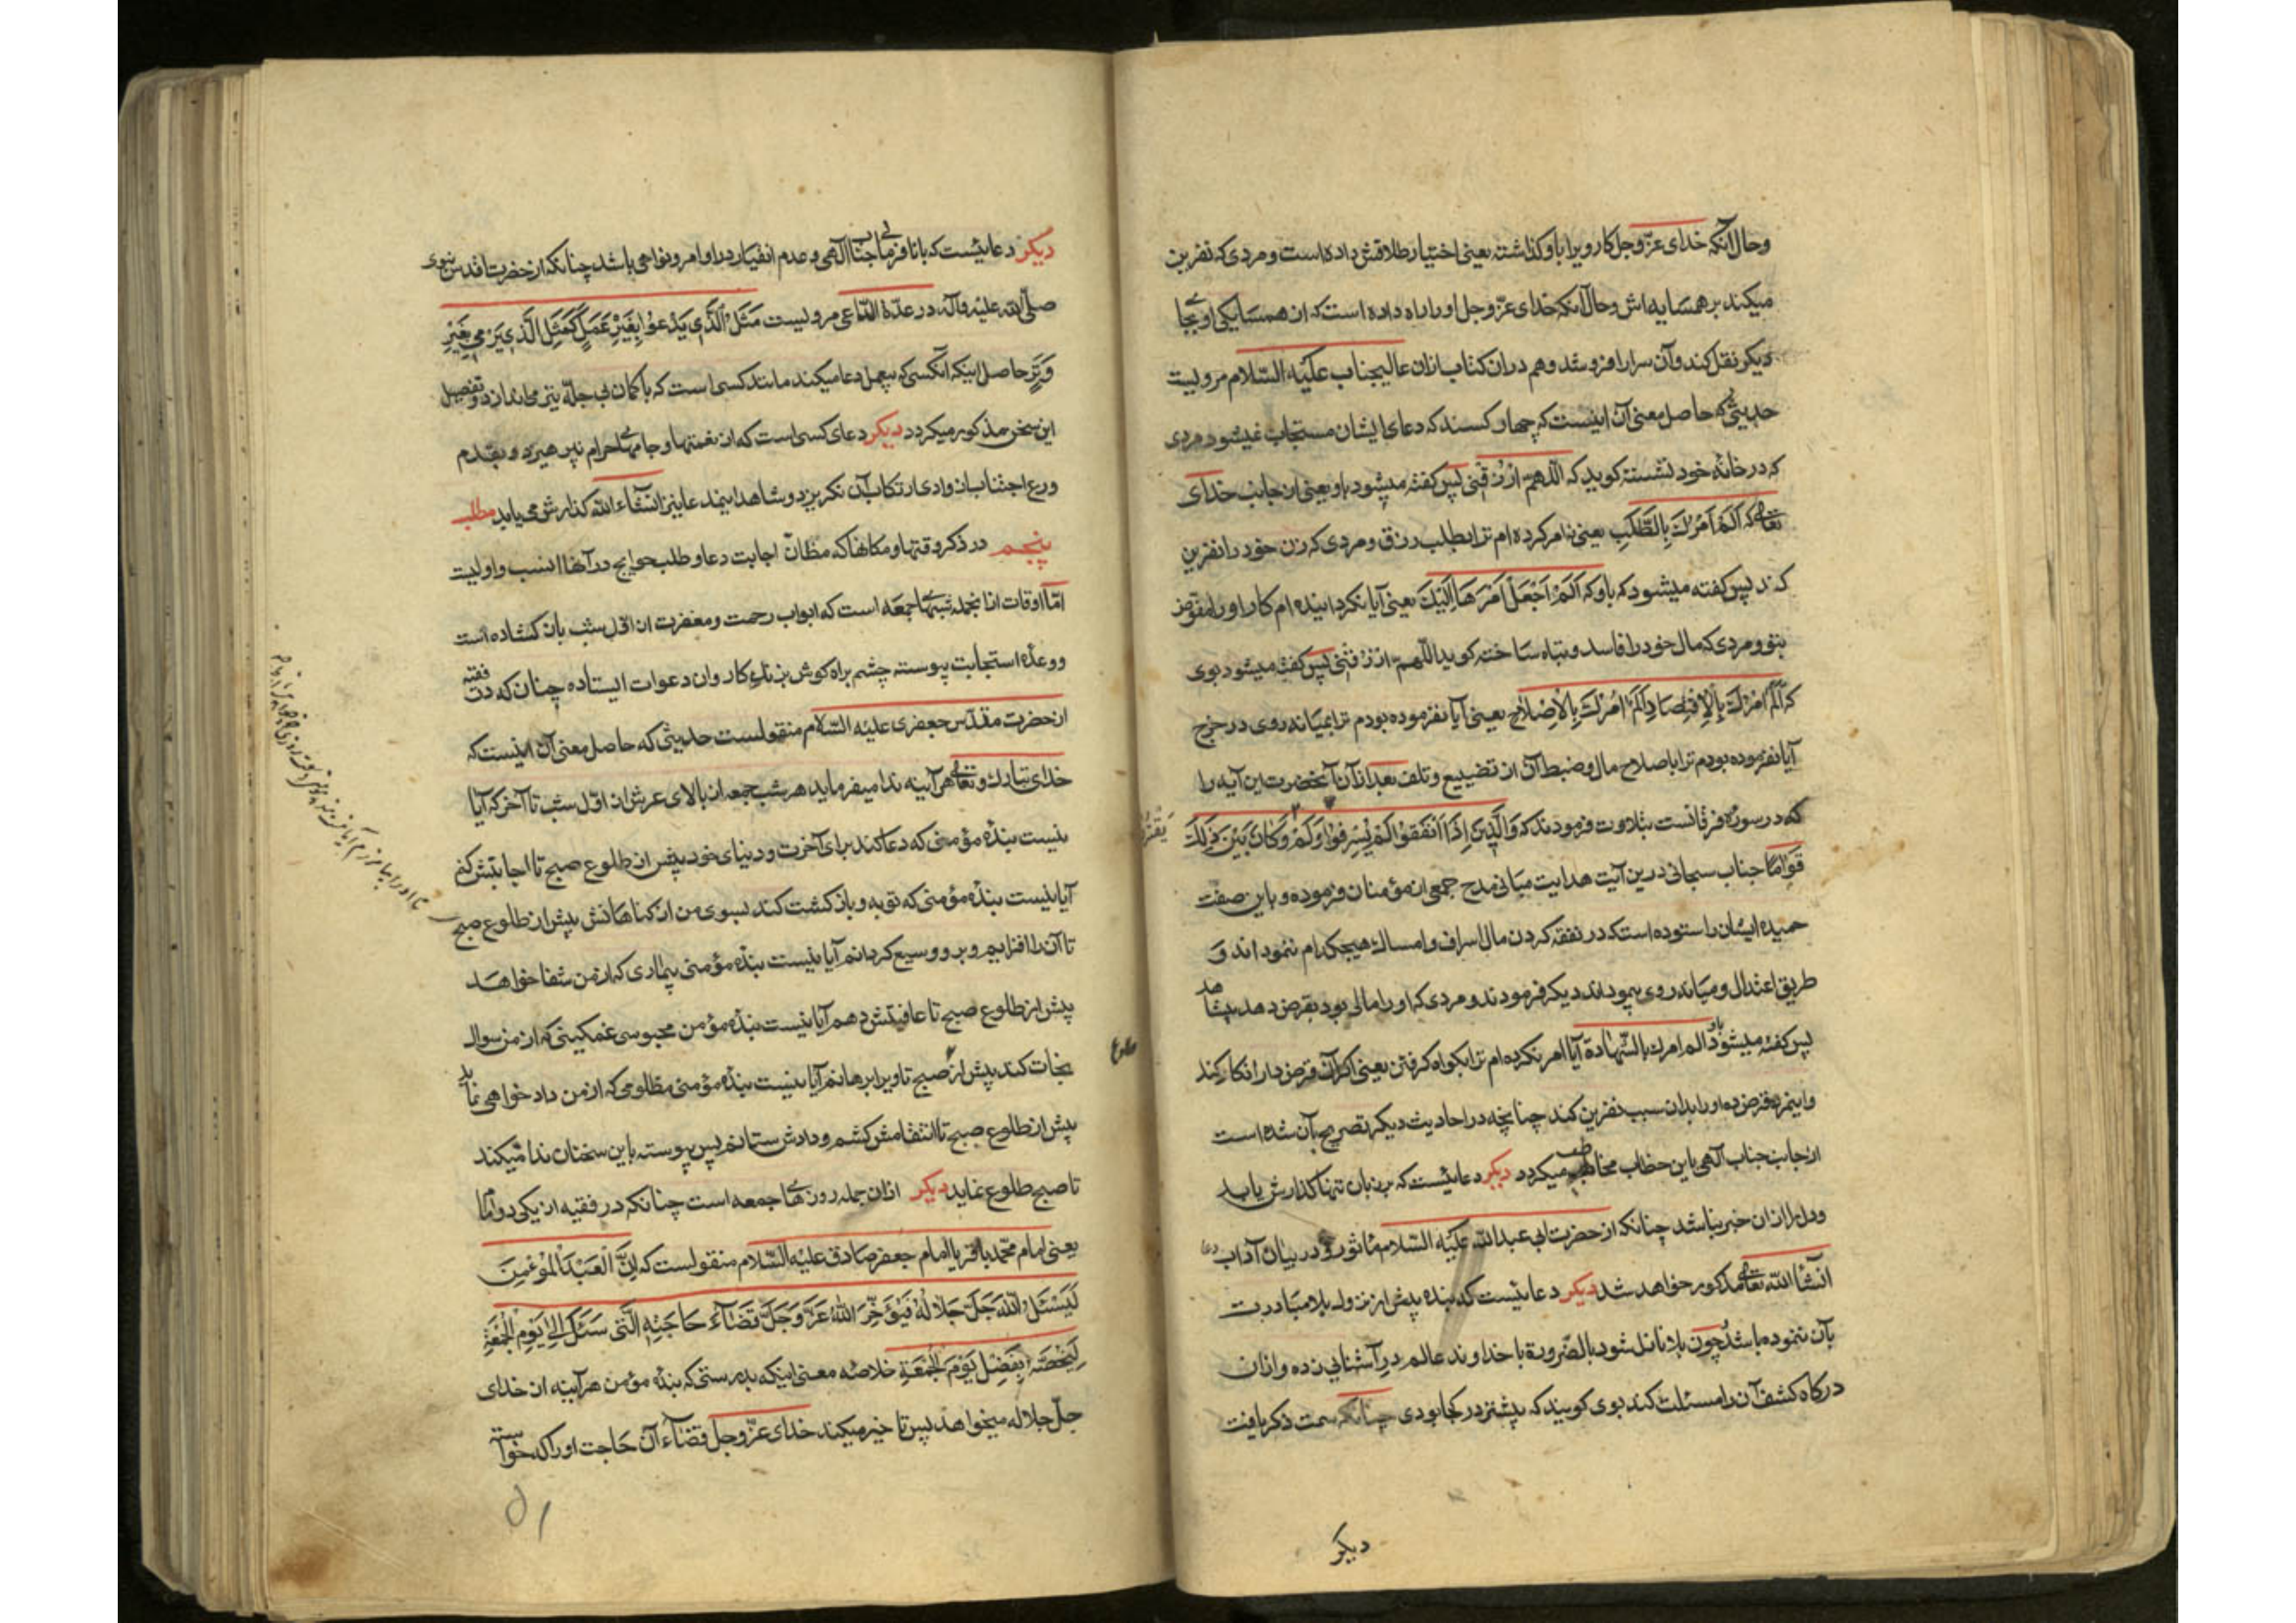 وحال آنکه خدای عزّوجل کار ویرا باو کذاشته یعنی اختیار طلاقش داده است و مردی که نفرین
میکند بر همسایه اش وحال آنکه خدای عزّوجل او را راه داده است که از همسایکی او بجای
دیکر نقل کند وآن سرا را فروشد وهم دران کتاب ازان عالیجناب علیه السّلام مرویست
حدیثی که حاصل معنی آن اینست که چهار کسند که دعای ایشان مستجاب نمیشود مردی
که در خانه خود نشسته کوید که اللّهمّ ارزقنی پس کفته میشود باو یعنی از جانب خدای
تعالی که اَلَم آمُرکَ بِالطَّلَبِ یعنی نه امر کرده ام ترا بطلب رزق و مردی که زن خود را نفرین
کند پس کفته میشود که باو که اَلَمْ اَجْعَلْ اَمْرَهَا اِلَیْکَ یعنی آیا نکردانیده ام کار او را مفوّض
بتو و مردی که مال خود را فاسد و تباه ساخته کوید اللّهمّ ارزقنی پس کفته میشود بوی
که اَلَمْ آمُرْکَ بِالْاِقْتِصَادِ اَلَمْ آمُرْکَ بِالْاِصْلَاحِ یعنی آیا نفرموده بودم ترا بمیانه روی در خرج
آیا نفرموده بودم ترا باصلاح مال وضبط آن از تضییع و تلف بعد ازان آنحضرت این آیه را
که در سوره فرقانست تلاوت فرمودند که وَالَّذِینَ اِذَا اَنْفَقُوا لَمْ یُسْرِفُوا وَلَمْ یَقْتُرُوا وَکَانَ بَیْنَ ذٰلِکَ
قَوَامًا جناب سبحانی درین آیت هدایت مبانی مدح جمعی از مؤمنان فرموده و باین صفت
حمیده ایشان را ستوده است که در نفقه کردن مال اسراف و امساک هیچکدام ننموده اند و
طریق اعتدال و میانه روی پیموده اند دیکر فرمودند و مردی که او را مالی بود بقرض دهد بی شاهد
پس کفته میشود باو الم امرک بالشّهادة آیا امر نکرده ام ترا بکواه کرفتن یعنی اکر آن قرض دار انکار کند
واینمرد قرض ده او را بدان سبب نفرین کند چنانچه در احادیث دیکر تصریح بآن شده است
از جانب جناب آلهی باین خطاب مخاطب میکردد دیکر دعائیست که بزبان تنها کذارش یابد
ودل را ازان خبر نباشد چنانکه از حضرت ابی عبدالله علیه السّلام ماثور و در بیان آداب دعا
انشآءالله تعالی مذکور خواهد شد دیکر دعائیست که بنده پیش از نزول بلا مبادرت
بآن ننموده باشد چون بلا نازل شود بالضّرورة با خداوند عالم در آشنایی زده وازان
درکاه کشف آن را مسئلت کند بوی کویند که پیشتر در کجا بودی چنانکه سمت ذکر یافت
دیکر
دیکر دعائیست که با نافرمانی جناب آلهی وعدم انقیاد در اوامر ونواهی باشد چنانکه از حضرت اقدس نبوی
صلّی الله علیه وآله در عدّة الدّاعی مرویست مَثَلُ الَّذِی یَدْعُوا بِغَیْرِ عَمَلٍ کَمَثَلِ الَّذِی یَرْمِی بِغَیْرِ
وَتَرٍ حاصل اینکه آنکسی که بیعمل دعا میکند مانند کسی است که با کمان بی چلّه تیر می اندازد و تفصیل
این سخن مذکور میکردد دیکر دعای کسی است که از نغمتها و جامهای حرام نپرهیزد و بقدم
ورع اجتناب از وادی ارتکاب آن نکریزد و شاهد اینمدعا نیز انشآءالله کذارش می یابد مطلب
پنجم در ذکر وقتها و مکانها که مظانّ اجابت دعا و طلب حوایج در آنها انسب واولیست
امّا اوقات ازانجمله شبهای جمعه است که ابواب رحمت و مغفرت از اوّل شب بازکشاده است
ووعدۀ استجابت پیوسته چشم براه کوش بزنک کاروان دعوات ایستاده چنان که در فقیه
از حضرت مقدّس جعفری علیه السّلام منقولست حدیثی که حاصل معنی آن اینست که
خدای تبارک و تعالی هرآینه ندا میفرماید هر شب جمعه از بالای عرش از اوّل شب تا آخر که آیا
نیست بندۀ مؤمنی که دعا کند برای آخرت و دنیای خود پیش از طلوع صبح تا اجابتش کنم
آیا نیست بندۀ مؤمنی که توبه و بازکشت کند بسوی من از کناهانش پیش از طلوع صبح
تا آن را افزایم وبر وی وسیع کردانم آیا نیست بندۀ مؤمنی بیماری که از من شفا خواهد
پیش از طلوع صبح تا عافیتش دهم آیا نیست بندۀ مؤمن محبوسی غمکینی که از من سوال
نجات کند پیش از طلوع صبح تا ویرا برهانم آیا نیست بندۀ مؤمنی مظلومی که از من دادخواهی نماید
پیش از طلوع صبح تا انتقامش کشم و دادش ستانم پس پیوسته باین سخنان ندا میکند
تا صبح طلوع نماید دیکر ازان جمله روزهای جمعه است چنانکه در فقیه از یکی دو امام
یعنی امام محمّد باقر یا امام جعفر صادق علیه السّلام منقولست که اِنَّ الْعَبْدَ الْمُؤْمِنَ
لَیَسْئَلُ اللهَ جَلَّ جَلَالُهُ فَیُؤَخِّرُ اللهُ عَزَّ وَجَلَّ قَضَآءَ حَاجَتِهِ الَّتِی سَئَلَ اِلٰی یَوْمِ الْجُمُعَةِ
لِیَخُصَّهُ بِفَضْلِ یَوْمِ الْجُمُعَةِ خلاصه معنی اینکه بدرستی که بندۀ مؤمن هرآینه از خدای
جلّ جلاله میخواهد پس تاخیر میکند خدای عزّوجل قضآء آن حاجت او را که خواسته
۵۱